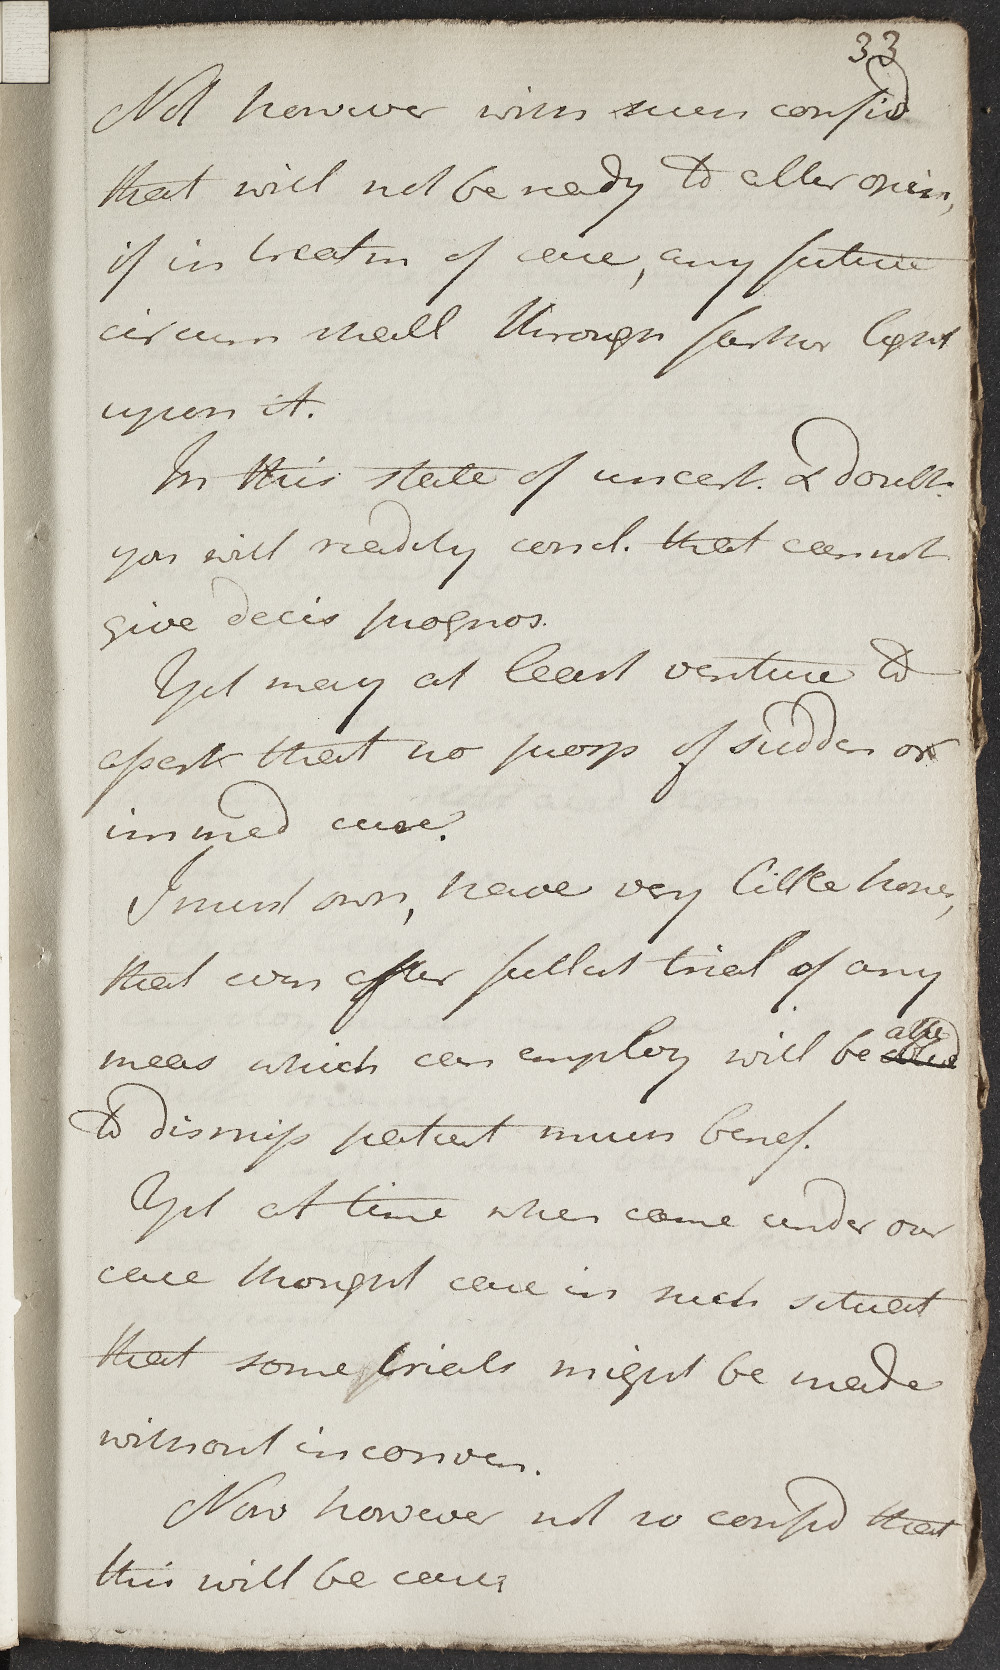 33
Not however with such confid
that will not be ready to alter opin,
if in treatm of case, any future
circum shall through farther light
upon it.
In this state of uncert. & doubt.
you will readily concl. that cannot
give decis prognos.
Yet may at least venture to
assert that no prosp of sudden or
immed cure.
I must own, have very little hopes,
that even after fullest trial of any
meas which can employ will be able
to dismiss patient much benef.
Yet at time when came under our
care thought case in such situat
that some trials might be made
without inconven.
Now however not so confid that
this will be case